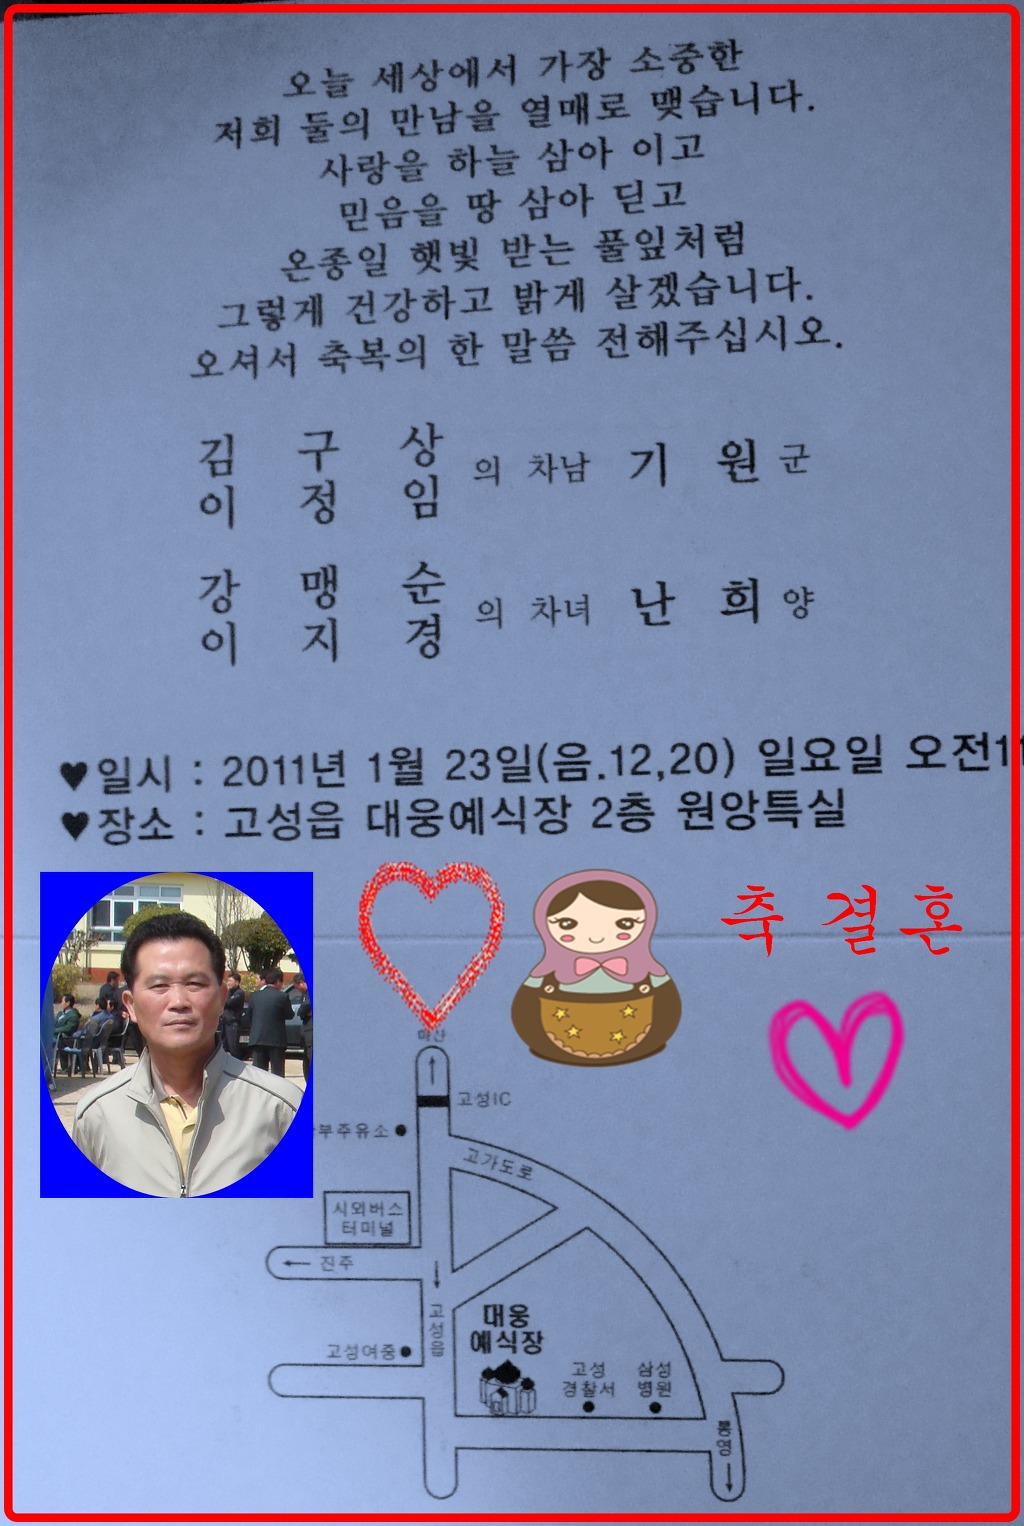 오늘 세상에서 가장 소중한
저희 둘의 만남을 열매로 맺습니다.
사랑을 하늘 삼아 이고
믿음을 땅 삼아 딛고
온종일 햇빛 받는 풀잎처럼
그렇게 건강하고 밝게 살겠습니다.
오셔서 축복의 한 말씀 전해주십시오.
김 구 상
이 정 임
의 차남 기 원 군
강 맹 순
이 지 경
의 차녀 난 희 양
♥일시 : 2011년 1월 23일(음.12,20) 일요일 오전11
♥장소 : 고성읍 대웅예식장 2층 원앙특실
축 결 혼
마산
고성IC
부주유소
고가도로
시외버스
터미널
진주
고성읍
대웅
예식장
고성여중
고성
경찰서
삼성
병원
통영